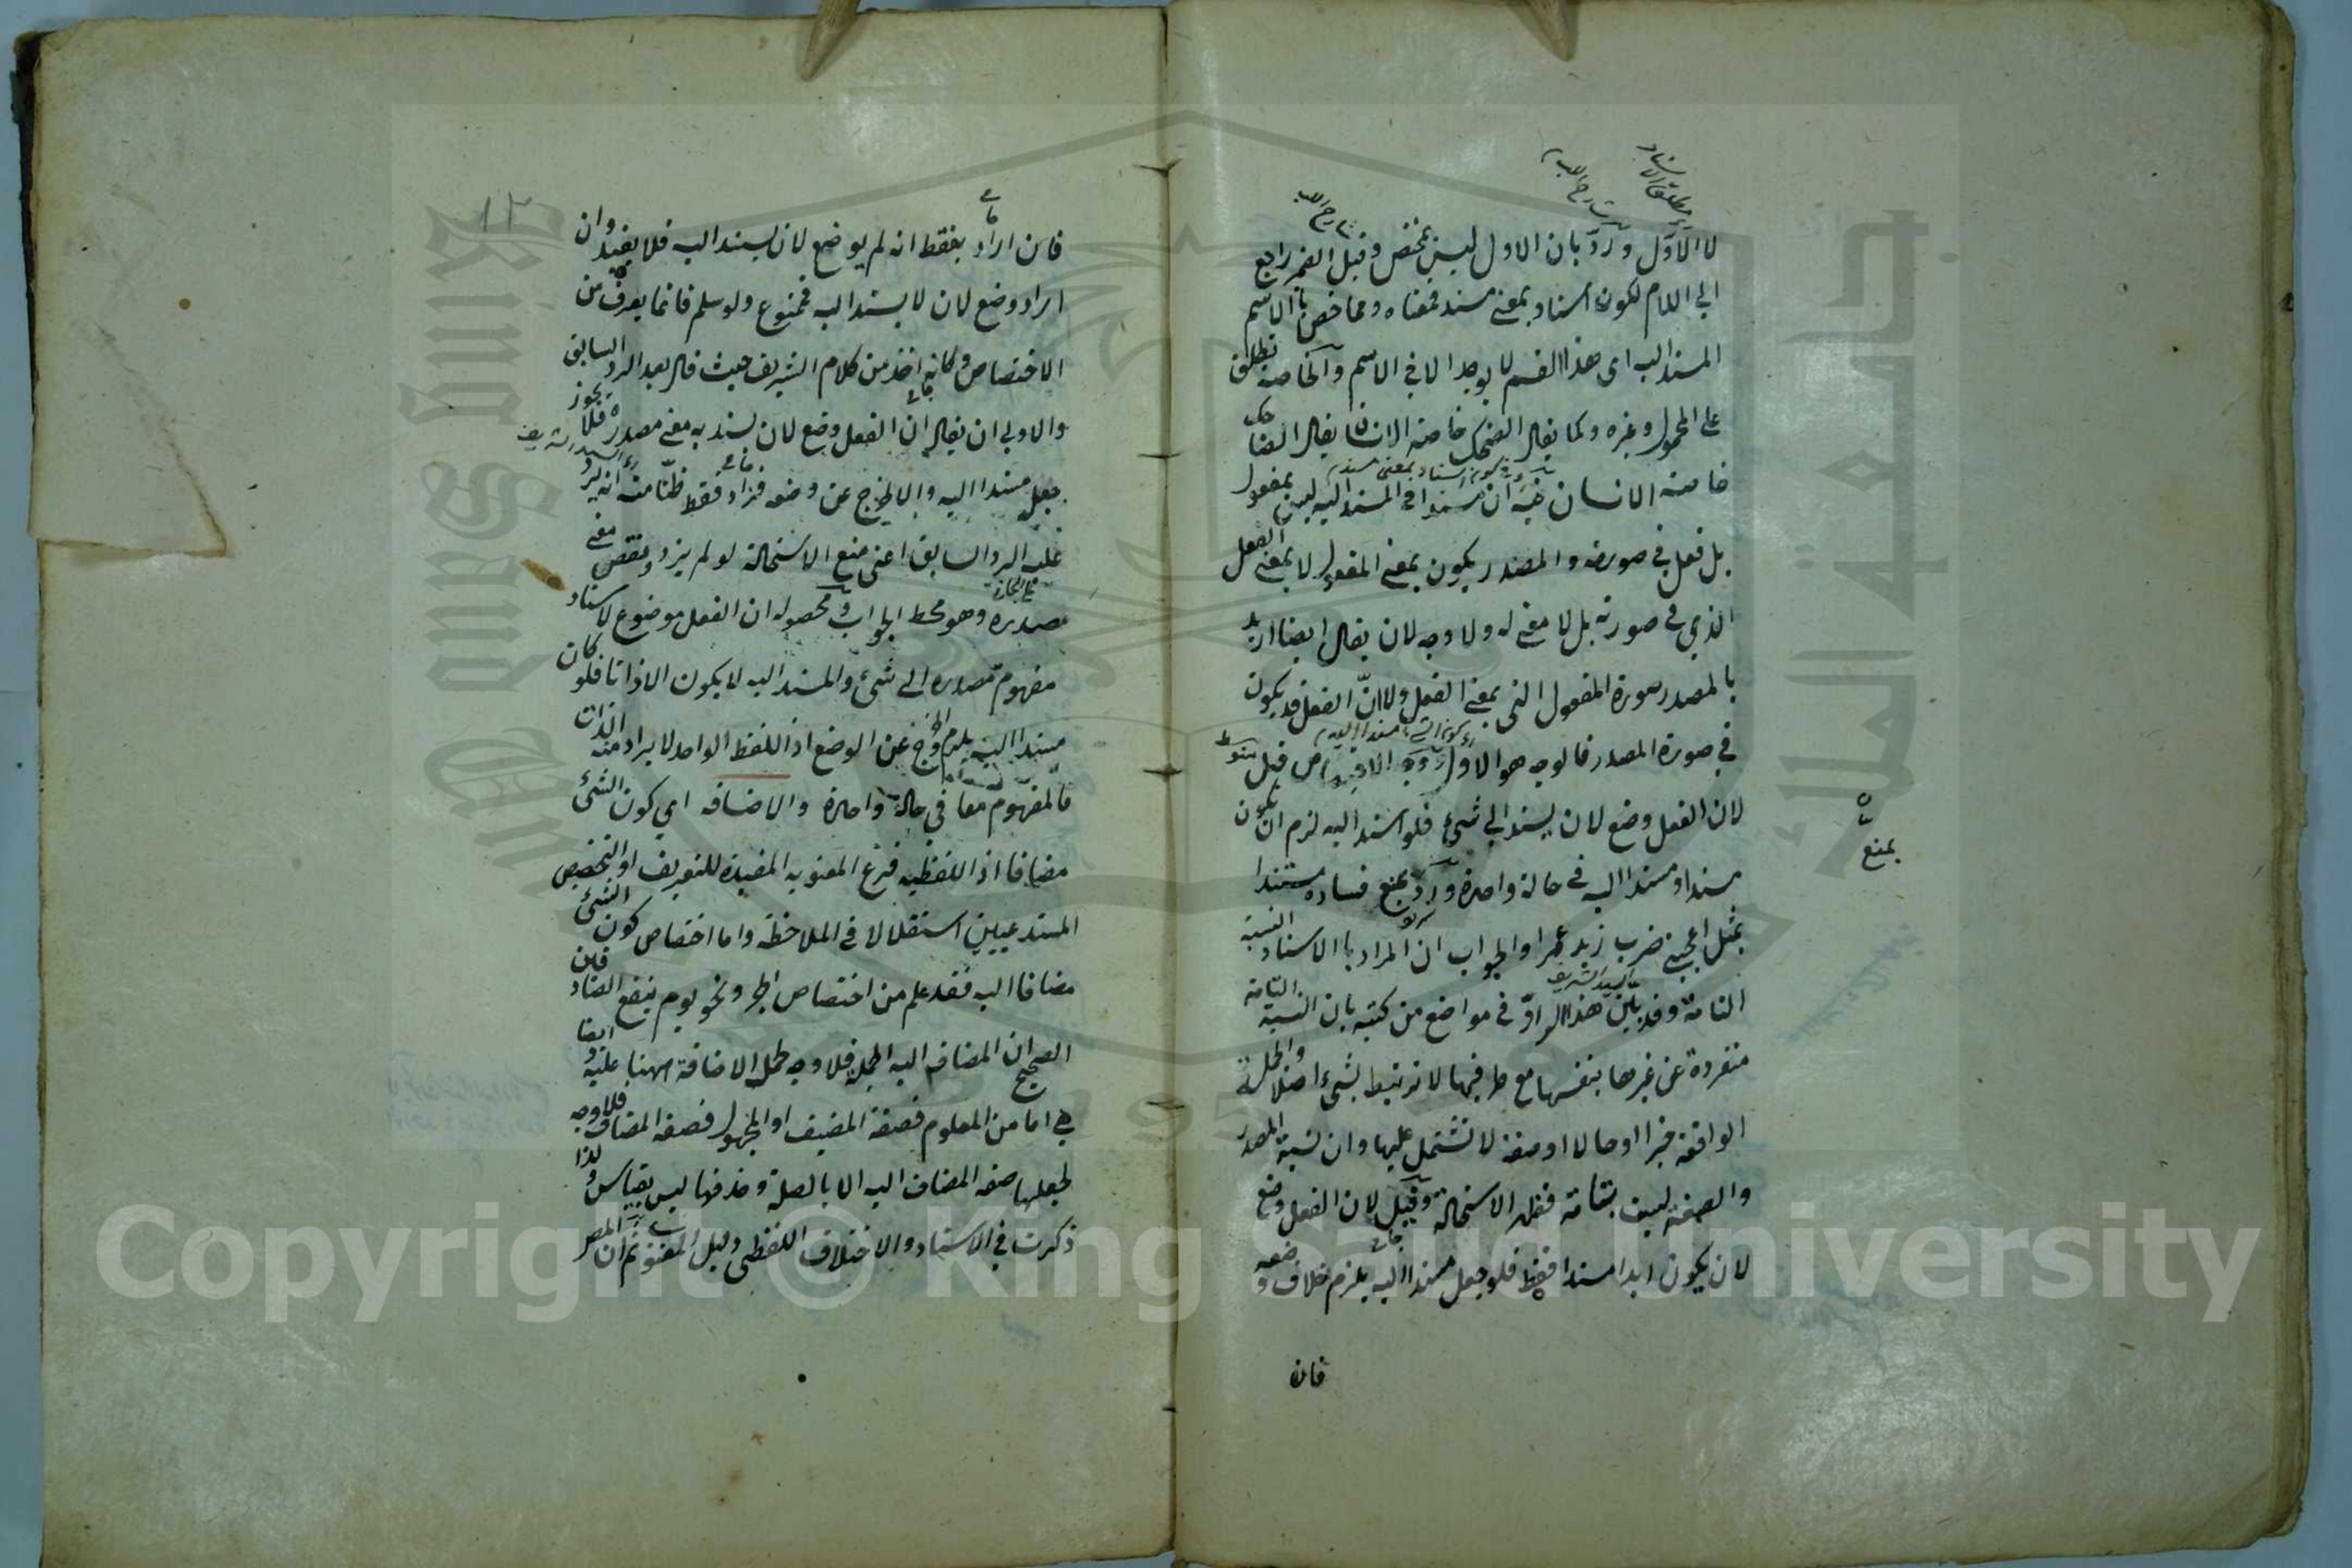 لا الاول ورد بان الاول ليس بمختص وقيل الضمير راجع
الى اللام لكون اسناد بمعنى مسند فمعناه ومما خص بالاسم
المسند اليه اى هذا القسم لا يوجد الا فى الاسم والخاصة تطلق
على المحمول وغيره وكما يقال الضحك خاصة الانسان يقال الضاحك
خاصة الانسان فيه ان مسندا فى المسند اليه ليس بمفعول
بل فعل فى صورته والمصدر يكون بمعنى المفعول لا بمعنى الفعل
الذي فى صورته بل لا معنى له ولا وجه لان يقال ايضا اريد
بالمصدر صورة المفعول التى بمعنى الفعل ولا ان الفعل قد يكون
في صورة المصدر فالوجه هو الاول وجه الاختصاص قيل
لان الفعل وضع لان يسند الى شئ فلو اسند اليه لزم ان يكون
مسندا ومسندا اليه فى حالة واحدة ورد بمنع فساده مستندا
بمثل اعجبنى ضرب زيد عمرا والجواب ان المراد بالاسناد النسبة
التامة وقد بين هذا الراد فى مواضع من كتبه بان النسبة التامة
منفردة عن غيرها بنفسها مع طرفيها لا ترتبط بشئ اصلا والجملة
الواقعة خبرا او حالا او صفة لا تشتمل عليها وان نسبة المصدر
والصفة ليست بتامة فظهر الاستحالة وقيل لان الفعل وضع
لان يكون ابدا مسندا فقط فلو جعل مسندا اليه يلزم خلاف وضعه
فان
بمنع
١٢
فان اراد بفقط انه لم يوضع لان يسند اليه فلا يفيد وان
اراد وضع لان لا يسند اليه فممنوع ولو سلم فانما يعرف من
الاختصاص وكانه اخذ من كلام الشريف حيث قال بعد الرد السابق
والاولى ان يقال ان الفعل وضع لان يسند به معنى مصدره فلا يجوز
جعل مسندا اليه والا لخرج عن وضعه فزاد فقط ظنا منه انه يرد
عليه الرد السابق اعنى منع الاستحالة لو لم يزد ونقص معنى
مصدره وهو محط الجواب ومحصوله ان الفعل موضوع لاسناد
مفهوم مصدره الى شئ والمسند اليه لا يكون الا ذاتا فلو كان
مسندا اليه يلزم الخروج عن الوضع اذ اللفظ الواحد لا يراد منه الذات
والمفهوم معا في حالة واحدة والاضافة اي كون الشئ
مضافا اذ اللفظية فرع المعنوية المفيدة للتعريف او التخصيص
المستدعيين استقلالا فى الملاحظة واما اختصاص كون الشئ
مضافا اليه فقد علم من اختصاص الجر ونحو يوم ينفع الصادقين
الصحيح ان المضاف اليه الجملة فلا وجه لحمل الاضافة ههنا عليه ايضا
هي اما من المعلوم فصفة المضيف او المجهول فصفة المضاف فلا وجه
لجعلها صفة المضاف اليه الا بالصلة وحذفها ليس بقياس ولذا
ذكرت في الاسناد والاختلاف اللفظى دليل المعنوى ثم ان المصر